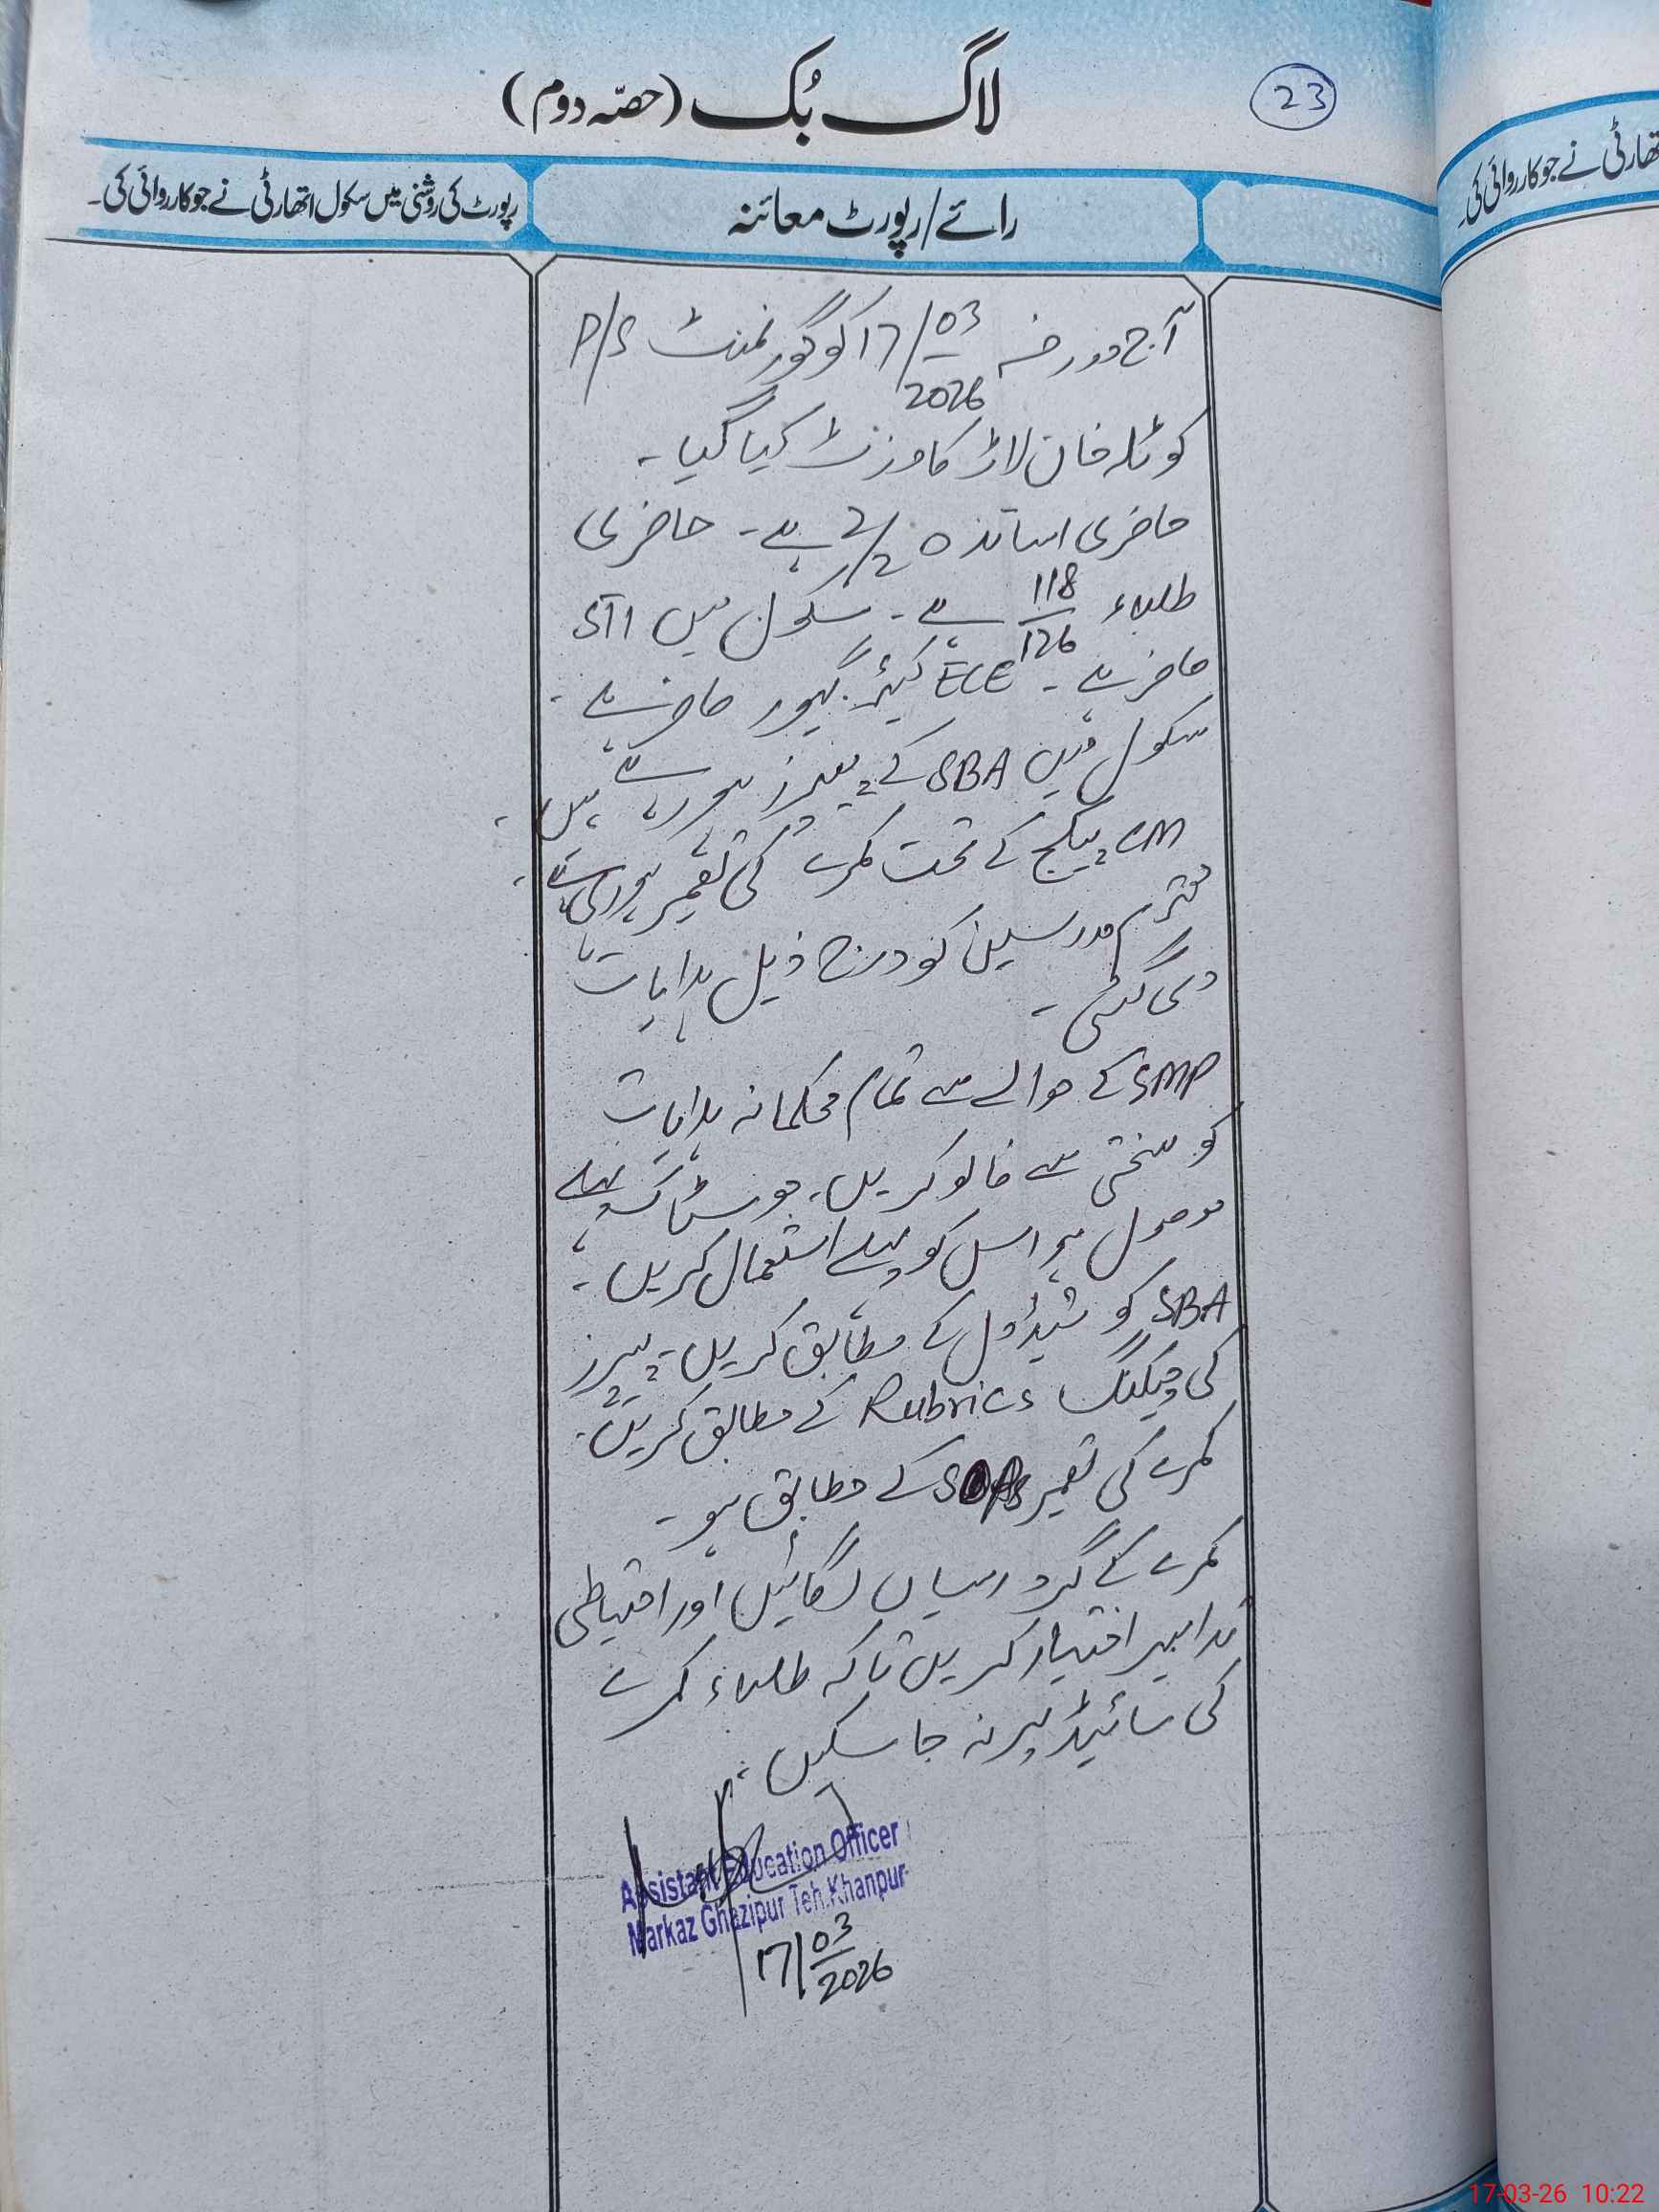 لاگ بُک (حصّہ دوم)
23
رائے/رپورٹ معائنہ
رپورٹ کی روشنی میں سکول اتھارٹی نے جو کارروائی کی۔
تھارٹی نے جو کارروائی کی۔
آج مورخہ 17/03/2026 کو گورنمنٹ P/S
کوٹلہ خان لاڑ کا وزٹ کیا گیا۔
حاضری اساتذہ 2/2 ہے۔ حاضری
طلباء 118/126 ہے۔ سکول میں STI
حاضر ہے۔ ECE کیئر گیور حاضر ہے۔
سکول میں SBA کے پیپرز ہو رہے ہیں۔
CM پیکج کے تحت کمرے کی تعمیر ہو رہی ہے۔
محترم مدرسین کو درج ذیل ہدایات
دی گئی۔
SMP کے حوالے سے تمام محکمانہ ہدایات
کو سختی سے فالو کریں۔ جو سٹاک پہلے
موصول ہو اس کو پہلے استعمال کریں۔
SBA کو شیڈول کے مطابق کریں۔ پیپرز
کی چیکنگ Rubrics کے مطابق کریں۔
کمرے کی تعمیر کے مطابق ہو۔
کمرے کے گرد رسیاں لگائیں اور احتیاطی
تدابیر اختیار کریں تاکہ طلباء کمرے
کی سائیڈ پر نہ جا سکیں۔
Assistant Education Officer
Markaz Ghazipur Teh.Khanpur
17/03/2026
17-03-26 10:22